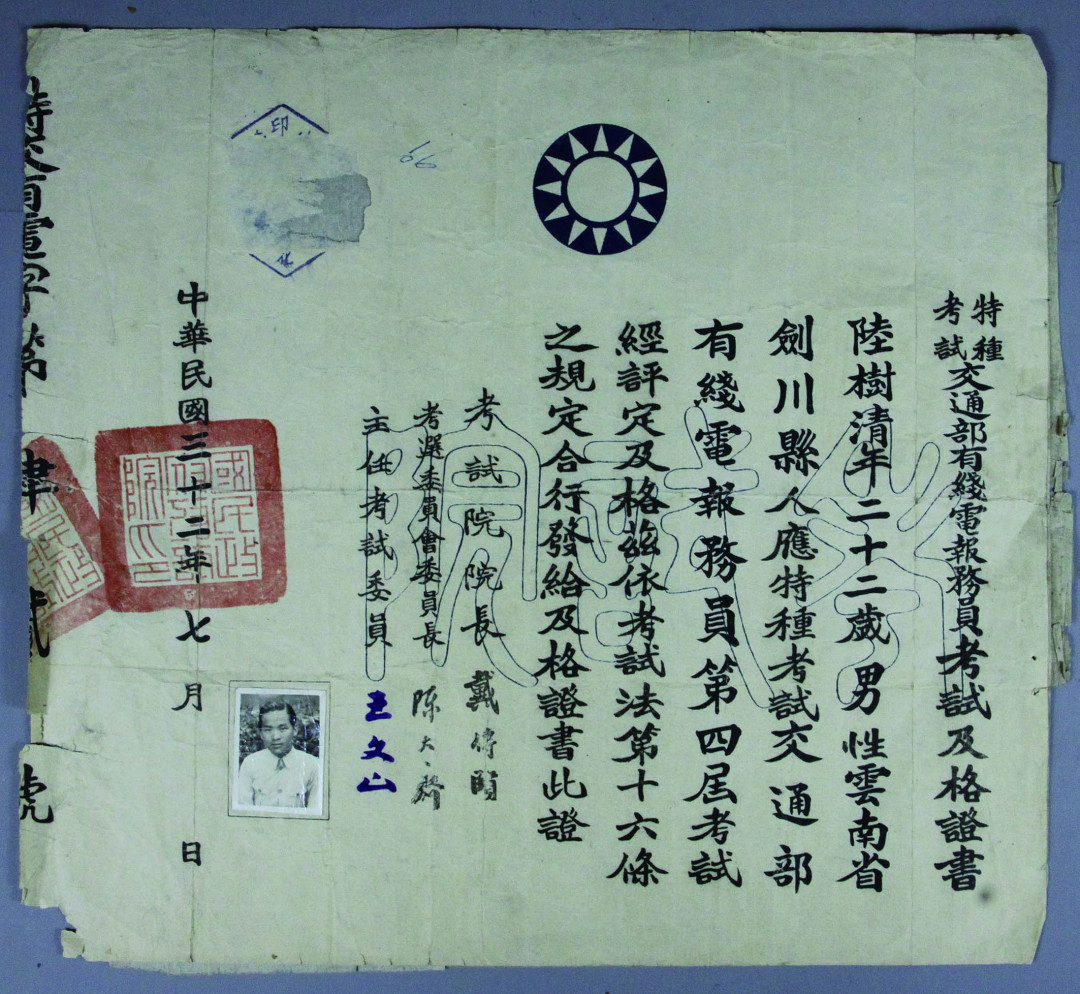 特種考試交通部有綫電報務員考試及格證書
陸樹清年二十二歲男性雲南省
劍川縣人應特種考試交通部
有綫電報務員第四屆考試
經評定及格茲依考試法第十六條
之規定合行發給及格證書此證
考試院院長 戴傳賢
考選委員會委員長 陳大齊
主任考試委員 王文山
中華民國三十二年七月 日
字第
號
印
66
考試院